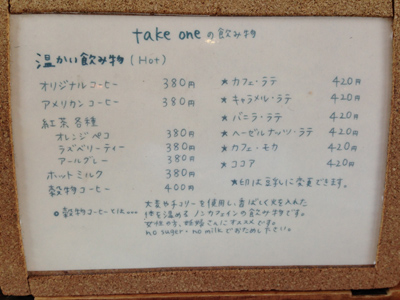 take one の飲み物
温かい飲み物 (Hot)
オリジナルコーヒー 380円
アメリカンコーヒー 380円
紅茶各種
オレンジペコ 380円
ラズベリーティー 380円
アールグレー 380円
ホットミルク 380円
穀物コーヒー 400円
★ カフェ・ラテ 420円
★ キャラメル・ラテ 420円
★ バニラ・ラテ 420円
★ ヘーゼルナッツ・ラテ 420円
★ カフェ・モカ 420円
★ ココア 420円
★印は豆乳に変更できます。
◎ 穀物コーヒーとは...
大麦やチコリーを使用し、香ばしく火を入れた
体を温める ノンカフェインの飲み物です。
女性の方、妊婦さんにオススメです。
no sugar・no milk でおためし下さい。